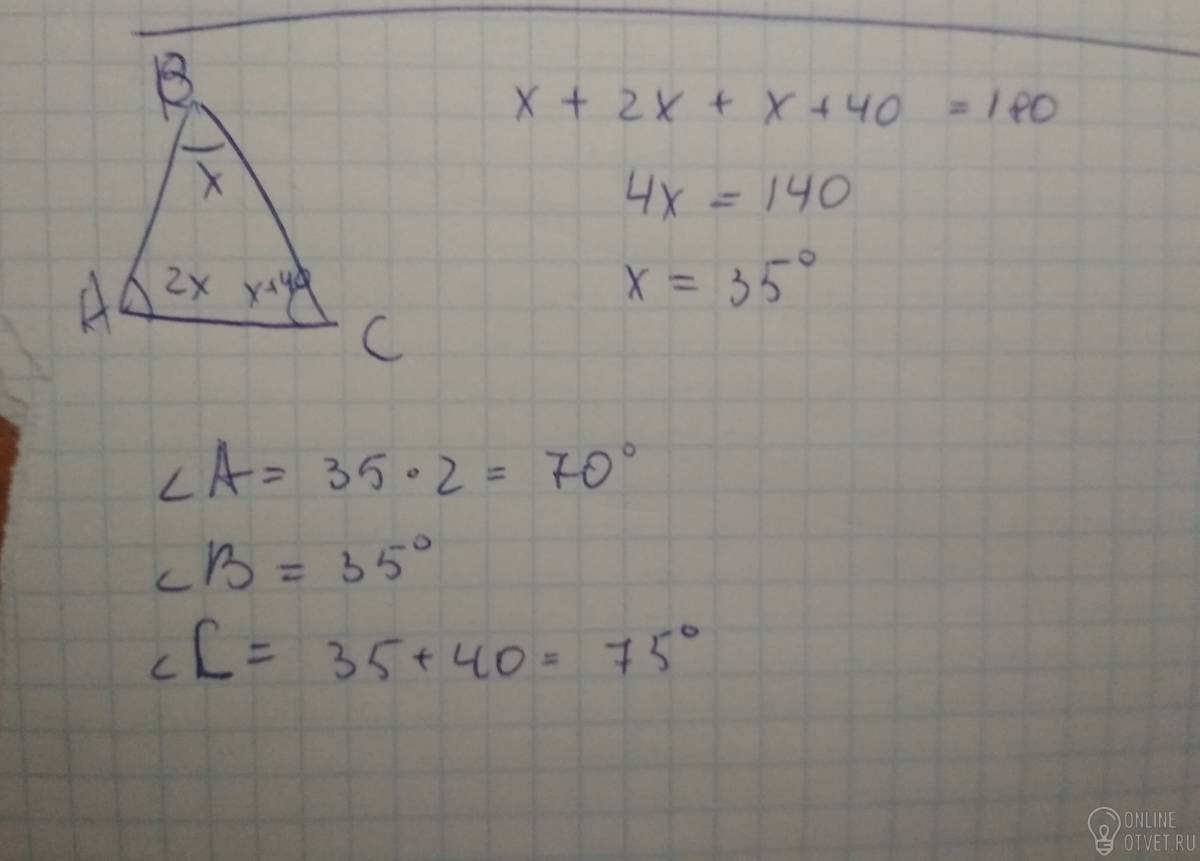 B
x + 2x + x + 40 = 180
x
4x = 140
2x x+40
x = 35°
A
C
∠A = 35 · 2 = 70°
∠B = 35°
∠C = 35 + 40 = 75°
ONLINE
OTVET.RU